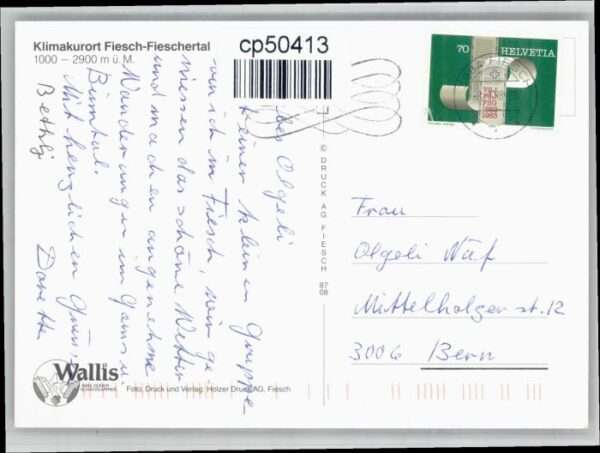 Klimakurort Fiesch-Fieschertal
1000 – 2900 m ü. M.
cp50413
70 HELVETIA
Olgeli
einer kleinen Gruppe
ich in Fiesch, wir ge-
niessen das schöne Wetter
und machen angenehme
Wanderungen im Goms u.
Binntal.
Mit herzlichen
Bethly
© DRUCK AG FIESCH
Frau
Olgeli Näf
Mittelholzerst. 12
3006 Bern
Wallis
Foto, Druck und Verlag: Holzer Druck AG, Fiesch